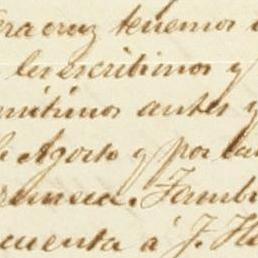 eracruz tenemos
les escribimos y
mitimos antes y
de Agosto y por la
remesa. Tambi
cuenta á J. H